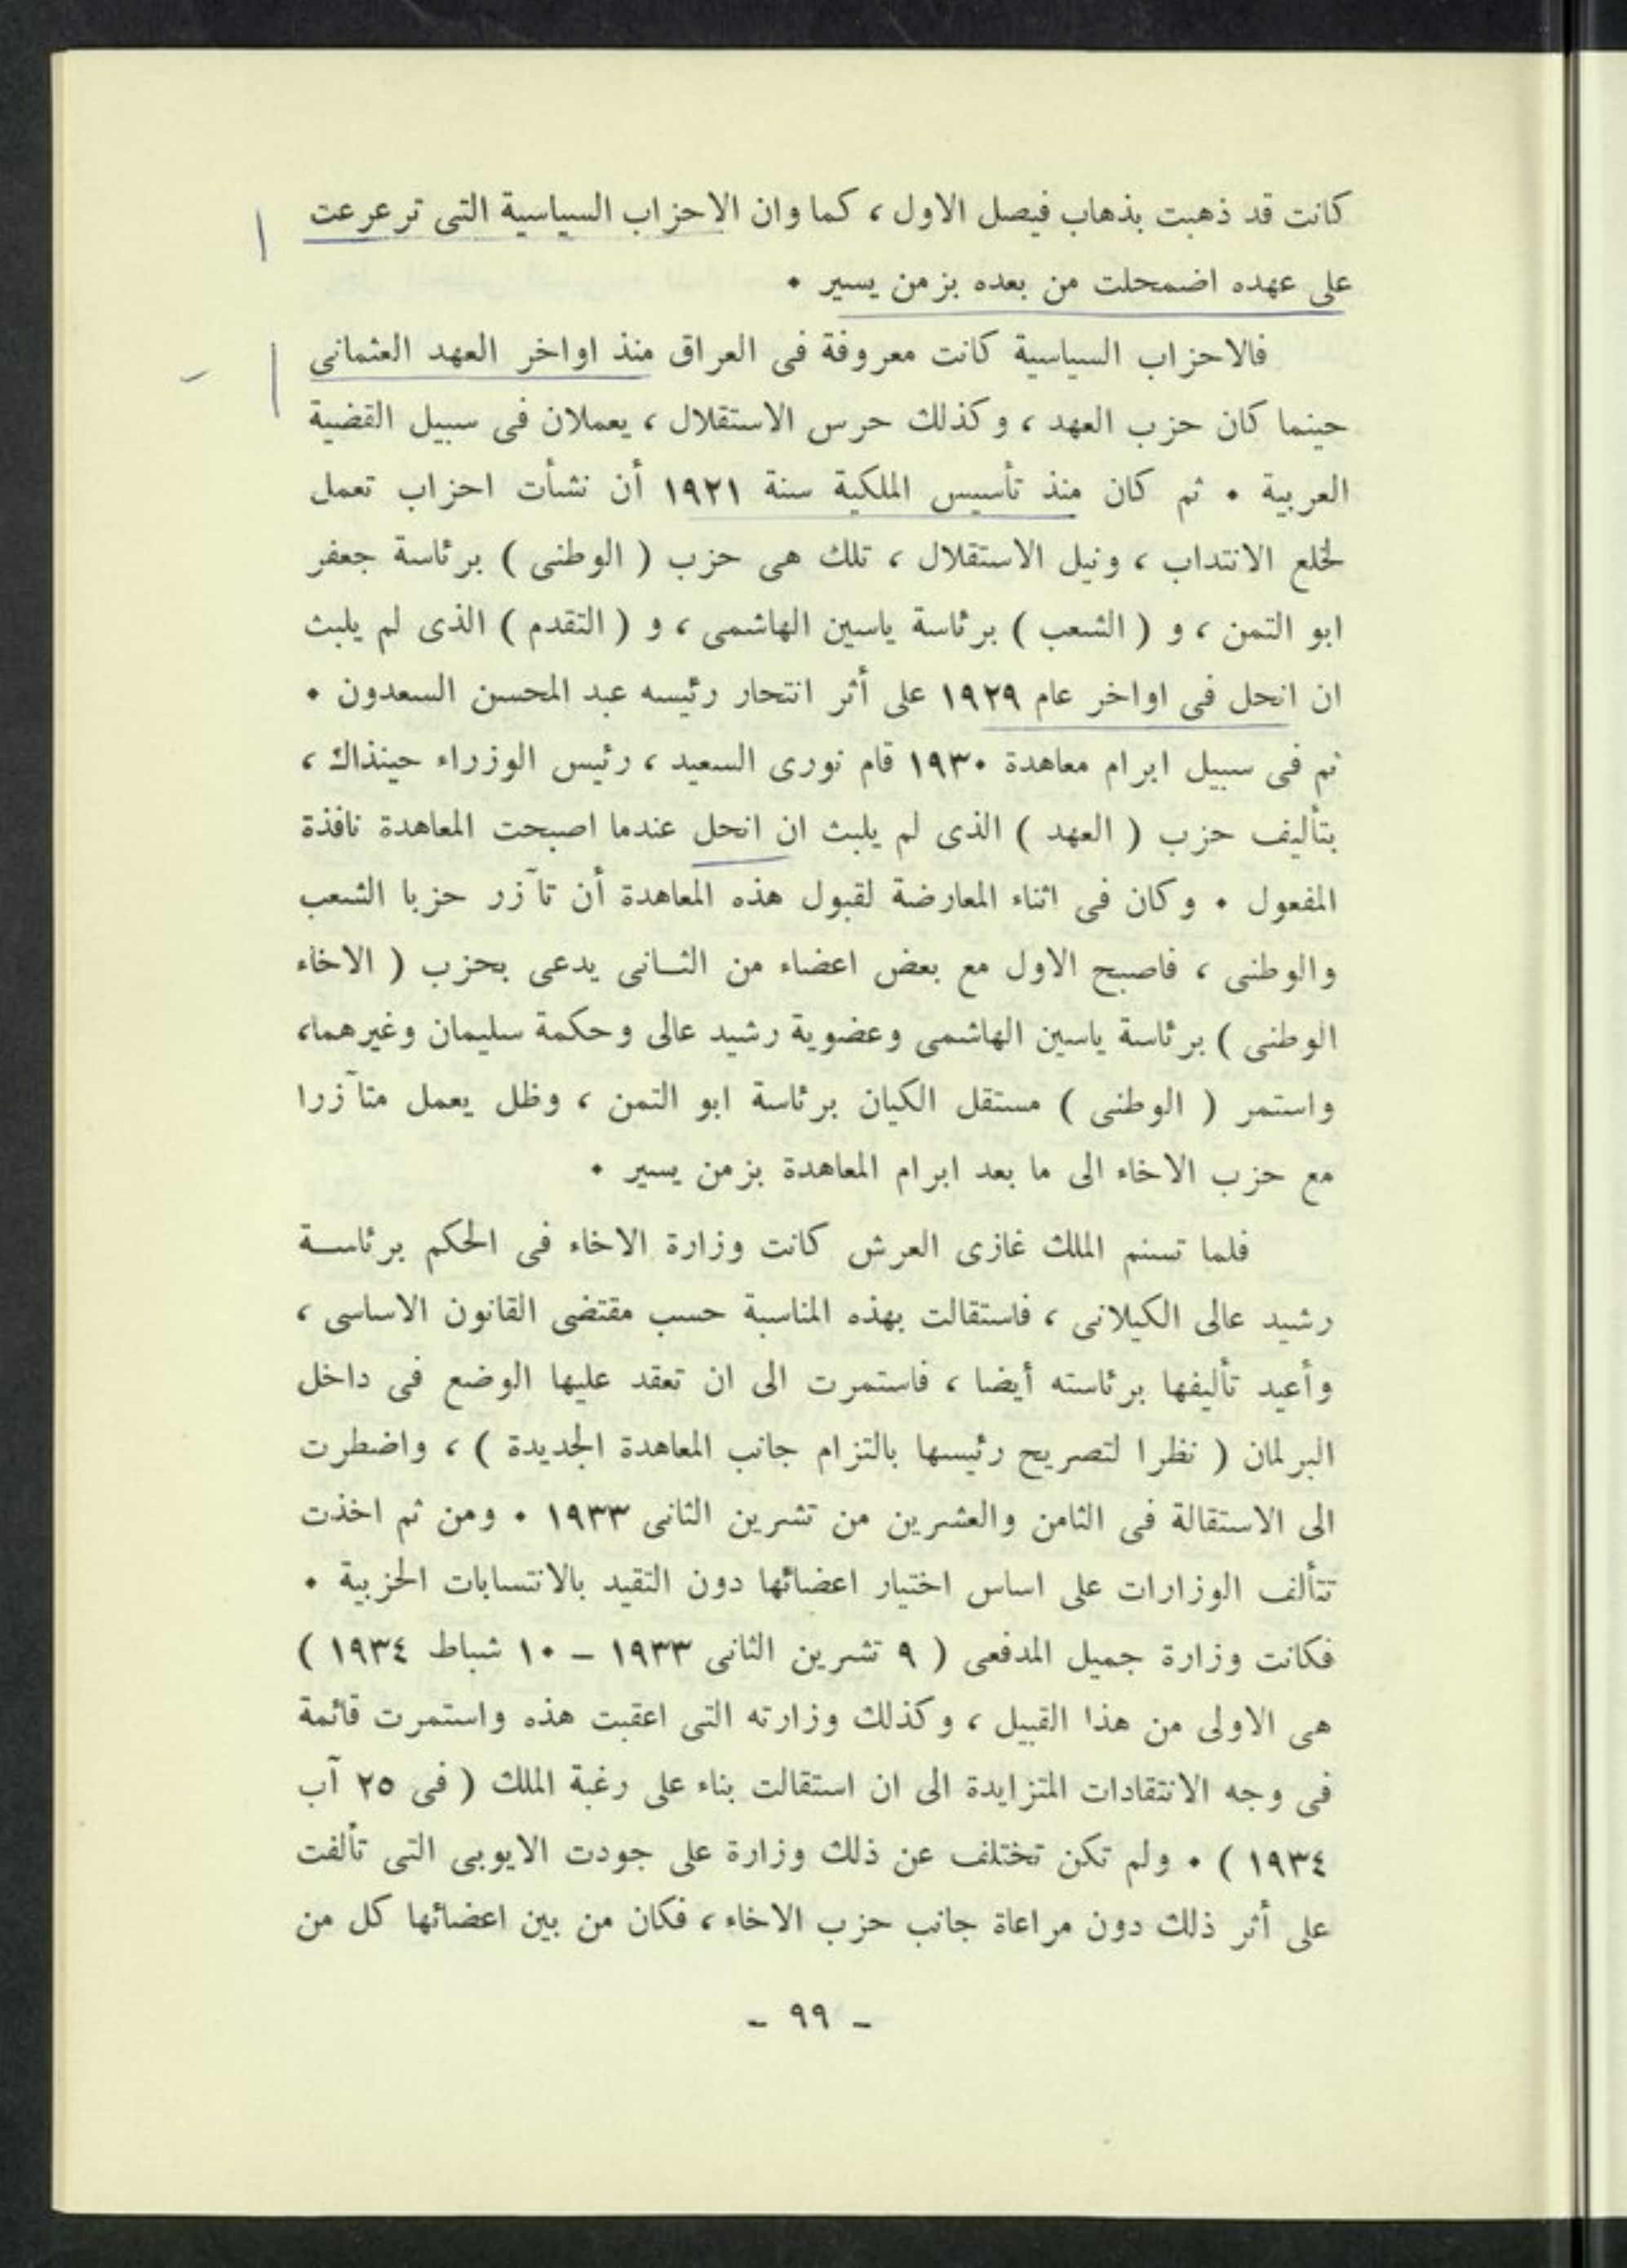 كانت قد ذهبت بذهاب فيصل الاول ، كما وان الاحزاب السياسية التى ترعرعت
على عهده اضمحلت من بعده بزمن يسير ٠
فالاحزاب السياسية كانت معروفة فى العراق منذ اواخر العهد العثمانى
حينما كان حزب العهد ، وكذلك حرس الاستقلال ، يعملان فى سبيل القضية
العربية ٠ ثم كان منذ تأسيس الملكية سنة ١٩٢١ أن نشأت احزاب تعمل
لخلع الانتداب ، ونيل الاستقلال ، تلك هى حزب ( الوطنى ) برئاسة جعفر
ابو التمن ، و ( الشعب ) برئاسة ياسين الهاشمى ، و ( التقدم ) الذى لم يلبث
ان انحل فى اواخر عام ١٩٢٩ على أثر انتحار رئيسه عبد المحسن السعدون ٠
ثم فى سبيل ابرام معاهدة ١٩٣٠ قام نورى السعيد ، رئيس الوزراء حينذاك ،
بتأليف حزب ( العهد ) الذى لم يلبث ان انحل عندما اصبحت المعاهدة نافذة
المفعول ٠ وكان فى اثناء المعارضة لقبول هذه المعاهدة أن تآزر حزبا الشعب
والوطنى ، فاصبح الاول مع بعض اعضاء من الثـانى يدعى بحزب ( الاخاء
الوطنى ) برئاسة ياسين الهاشمى وعضوية رشيد عالى وحكمة سليمان وغيرهما،
واستمر ( الوطنى ) مستقل الكيان برئاسة ابو التمن ، وظل يعمل متآزرا
مع حزب الاخاء الى ما بعد ابرام المعاهدة بزمن يسير ٠
فلما تسنم الملك غازى العرش كانت وزارة الاخاء فى الحكم برئاسـة
رشيد عالى الكيلانى ، فاستقالت بهذه المناسبة حسب مقتضى القانون الاساسى ،
وأعيد تأليفها برئاسته أيضا ، فاستمرت الى ان تعقد عليها الوضع فى داخل
البرلمان ( نظرا لتصريح رئيسها بالتزام جانب المعاهدة الجديدة ) ، واضطرت
الى الاستقالة فى الثامن والعشرين من تشرين الثانى ١٩٣٣ ٠ ومن ثم اخذت
تتألف الوزارات على اساس اختيار اعضائها دون التقيد بالانتسابات الحزبية ٠
فكانت وزارة جميل المدفعى ( ٩ تشرين الثانى ١٩٣٣ – ١٠ شباط ١٩٣٤ )
هى الاولى من هذا القبيل ، وكذلك وزارته التى اعقبت هذه واستمرت قائمة
فى وجه الانتقادات المتزايدة الى ان استقالت بناء على رغبة الملك ( فى ٢٥ آب
١٩٣٤ ) ٠ ولم تكن تختلف عن ذلك وزارة على جودت الايوبى التى تألفت
على أثر ذلك دون مراعاة جانب حزب الاخاء ، فكان من بين اعضائها كل من
– ٩٩ –